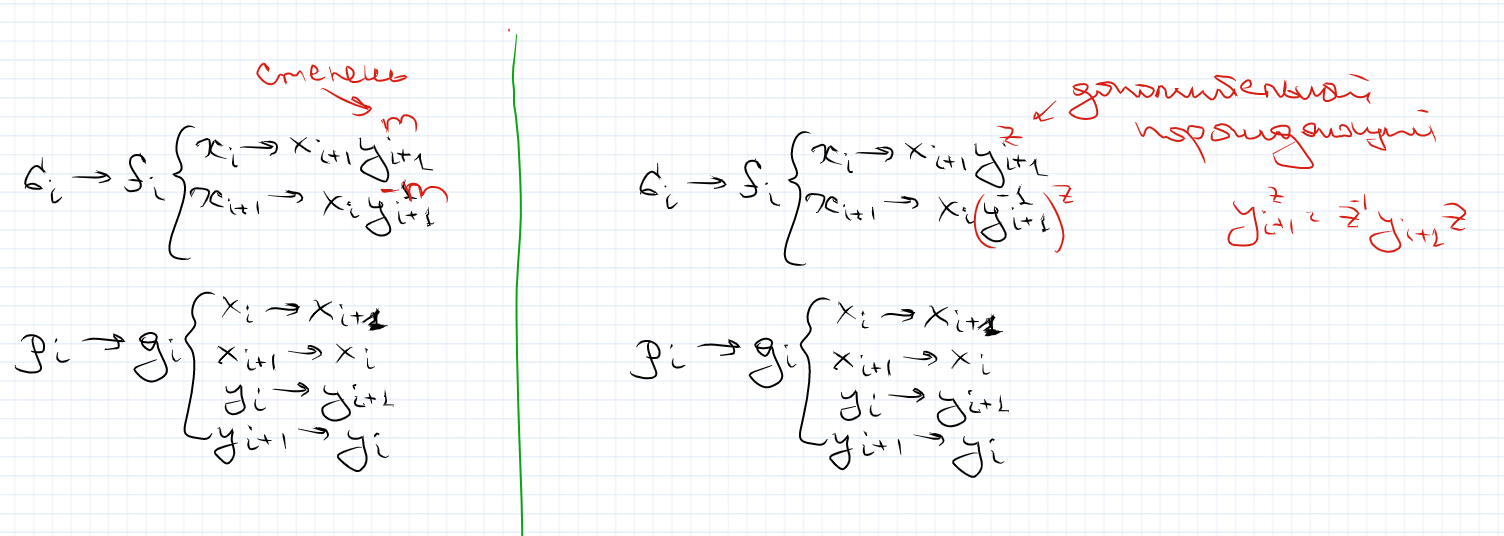 степень
m
σᵢ → fᵢ { xᵢ → xᵢ₊₁ yᵢ₊₁
xᵢ₊₁ → xᵢ yᵢ₊₁ -m
ρᵢ → gᵢ { xᵢ → xᵢ₊₁
xᵢ₊₁ → xᵢ
yᵢ → yᵢ₊₁
yᵢ₊₁ → yᵢ
дополнительный
порождающий
z
σᵢ → fᵢ { xᵢ → xᵢ₊₁ yᵢ₊₁
xᵢ₊₁ → xᵢ (yᵢ₊₁⁻¹)ᶻ
yᵢ₊₁ᶻ = z⁻¹ yᵢ₊₁ z
ρᵢ → gᵢ { xᵢ → xᵢ₊₁
xᵢ₊₁ → xᵢ
yᵢ → yᵢ₊₁
yᵢ₊₁ → yᵢ